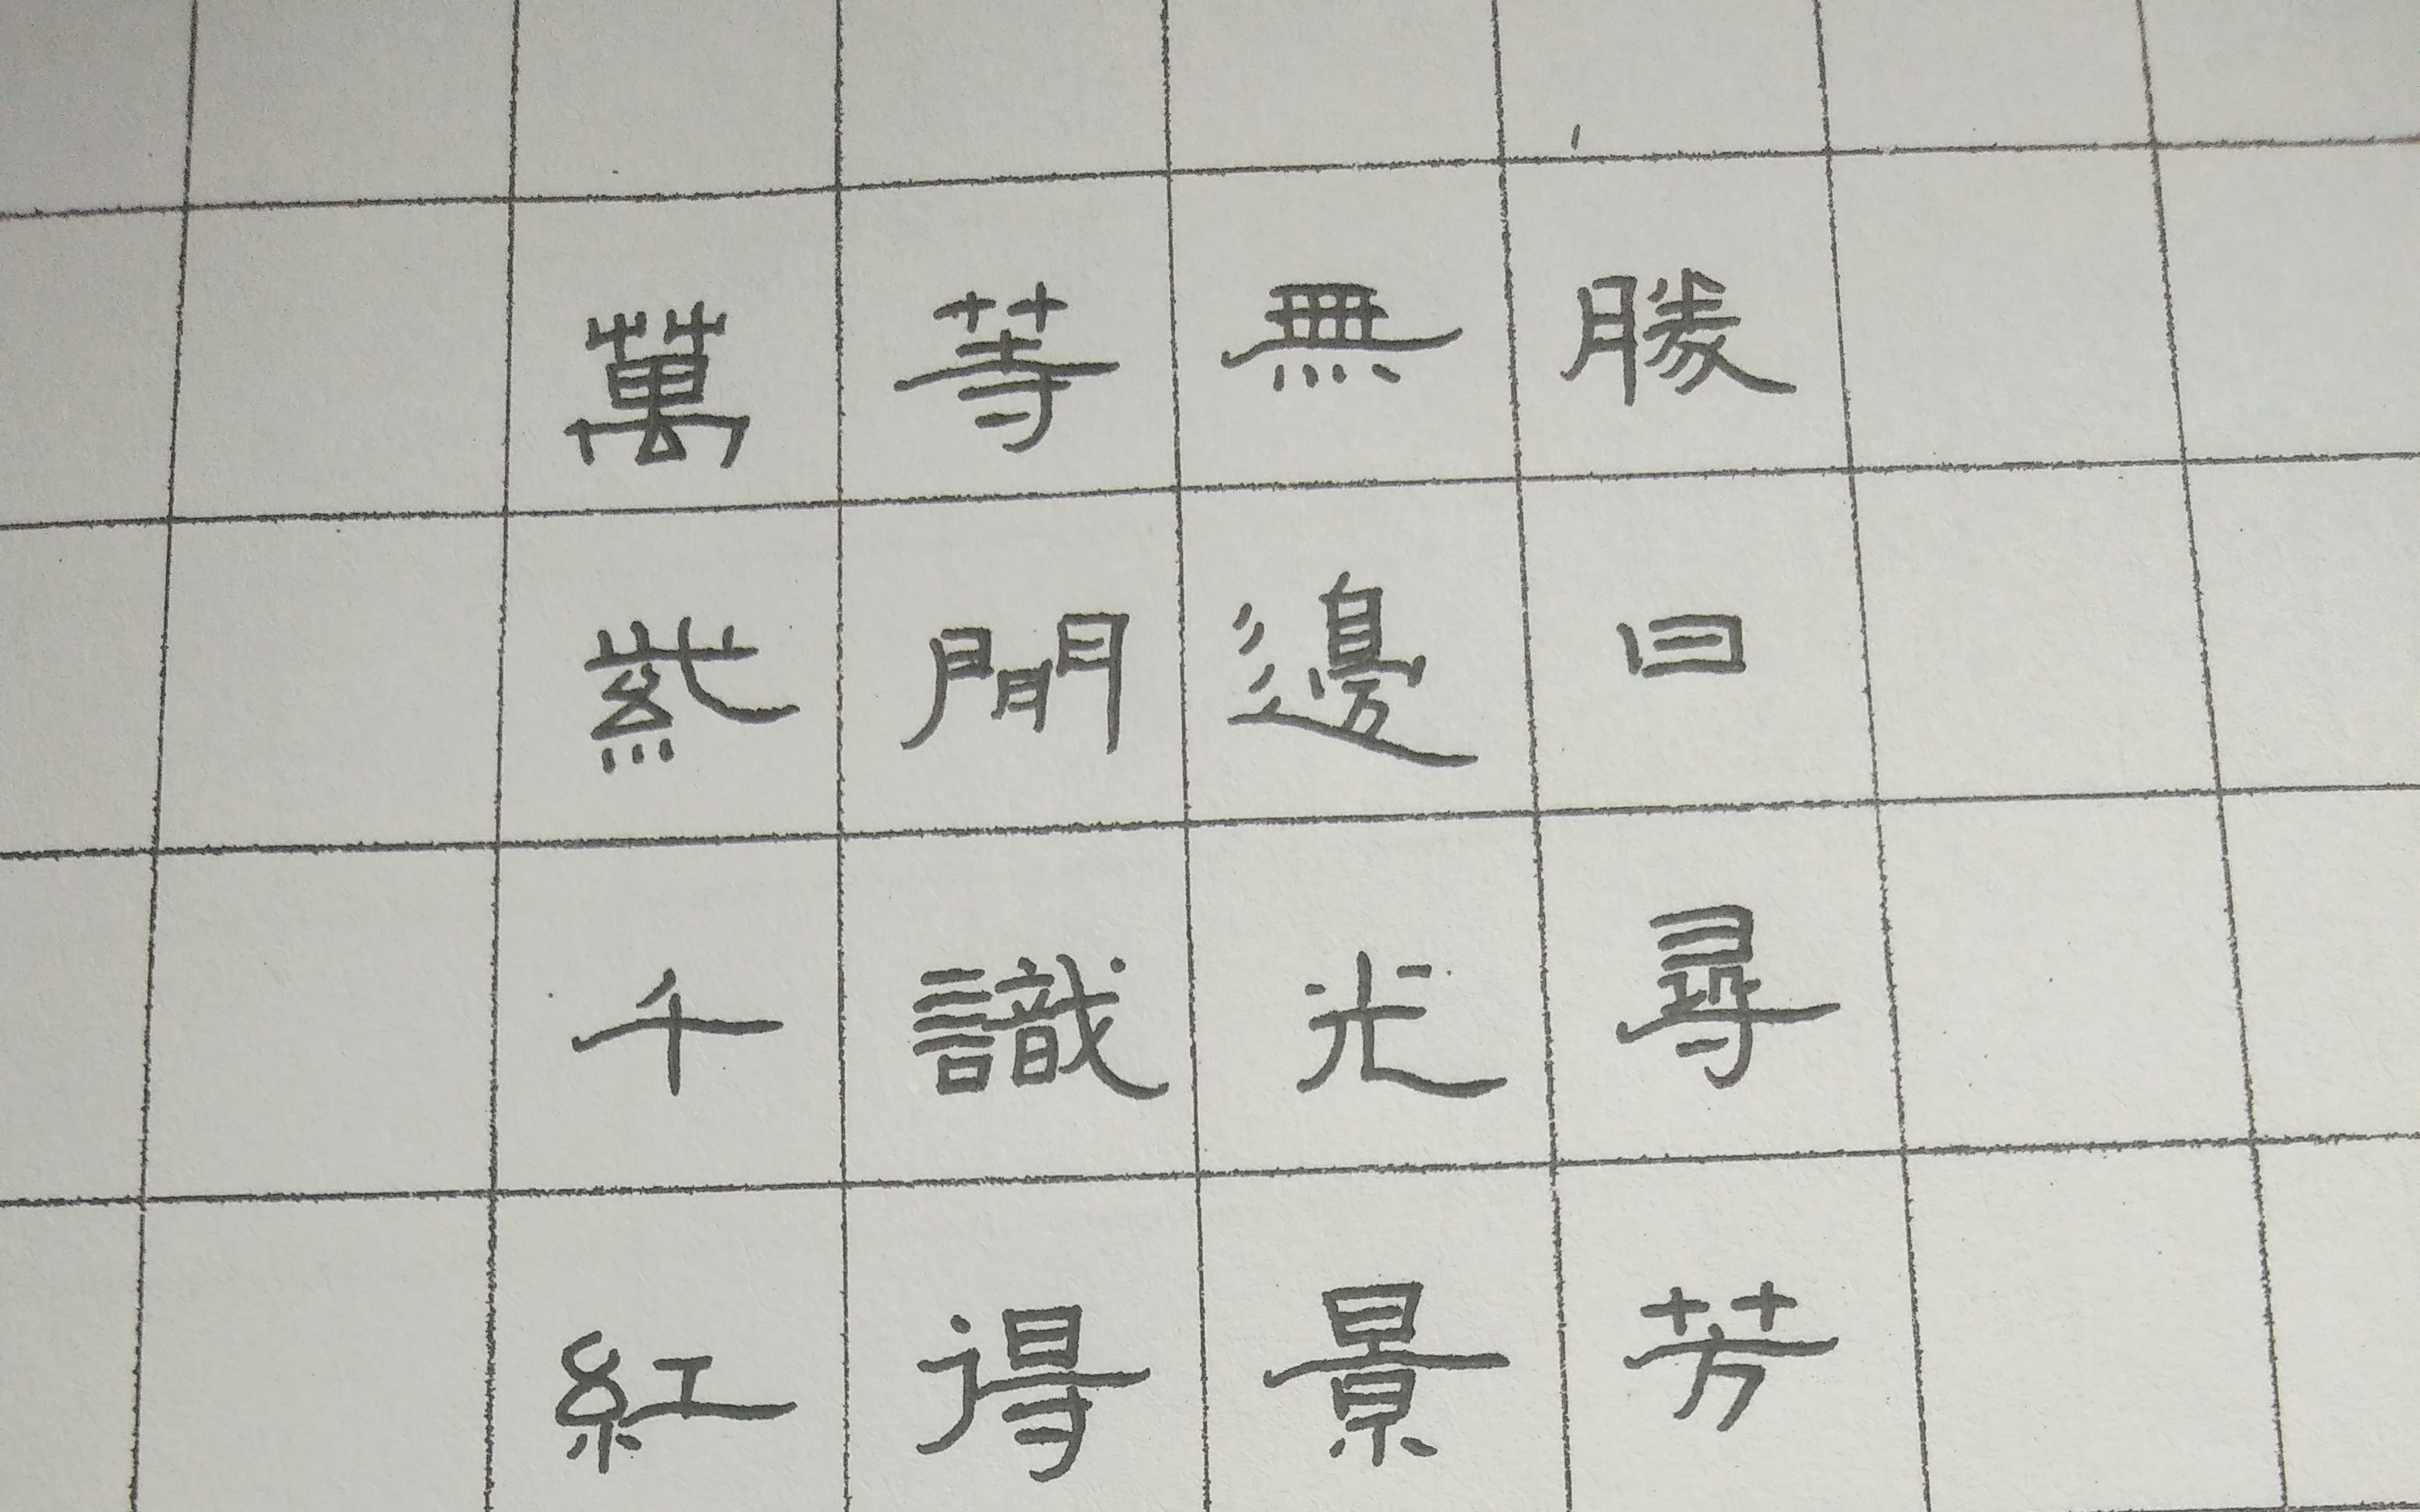 勝日尋芳
無邊光景
等閒識得
萬紫千紅